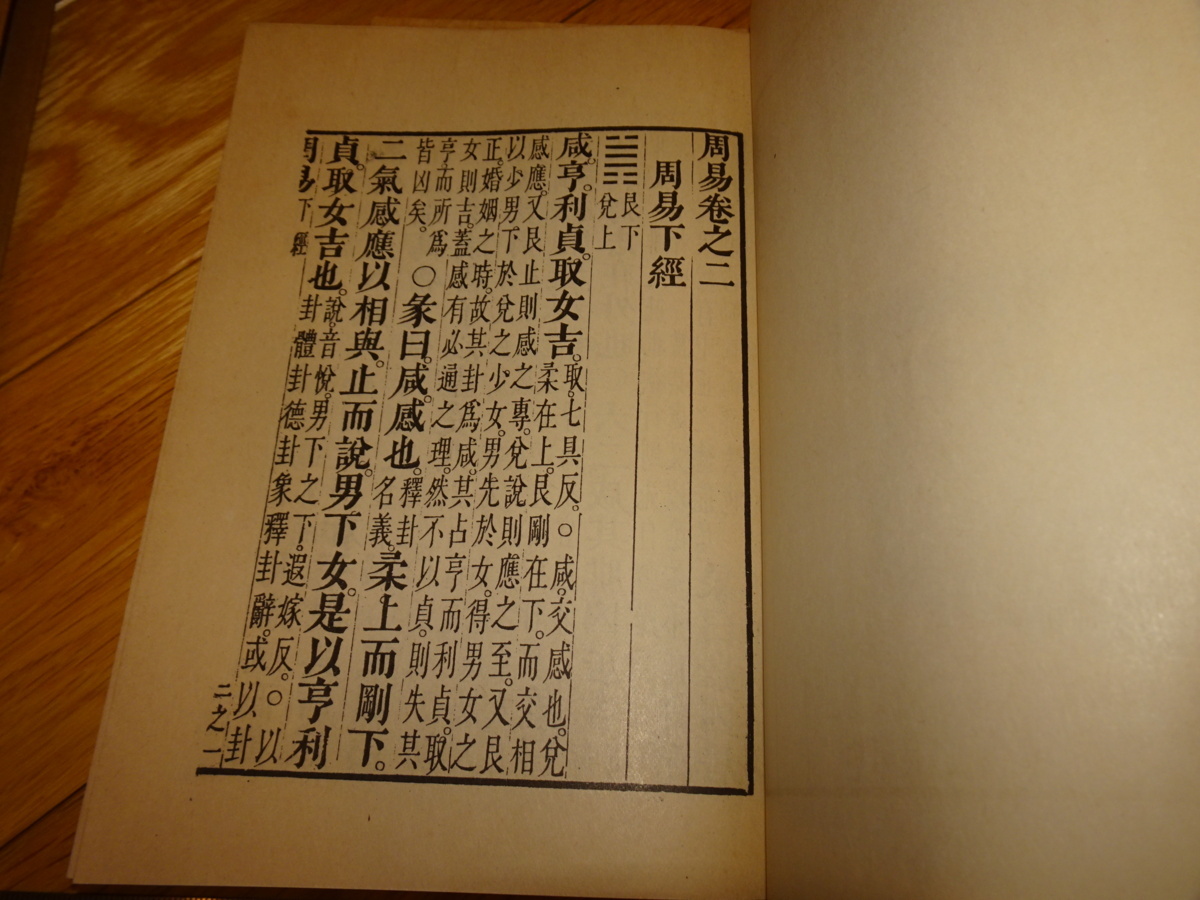 周易卷之二
周易下經
䷞ 艮下
兌上
咸。亨。利貞。取女吉。取。七具反。○咸。交感也。兌
柔在上。艮剛在下。而交相
感應。又艮止則感之專。兌說則應之至。又艮
以少男下於兌之少女。男先於女。得男女之
正。婚姻之時。故其卦爲咸。其占亨而利貞。取
女則吉。蓋感有必通之理。然不以貞。則失其
亨。而所爲
皆凶矣。
○彖曰。咸。感也。釋卦
名義。
柔上而剛下。
二氣感應以相與。止而說。男下女。是以亨利
貞。取女吉也。說。音悅。男下之下。遐嫁反。○以
卦體卦德卦象釋卦辭。或以卦
周易下經 二之一